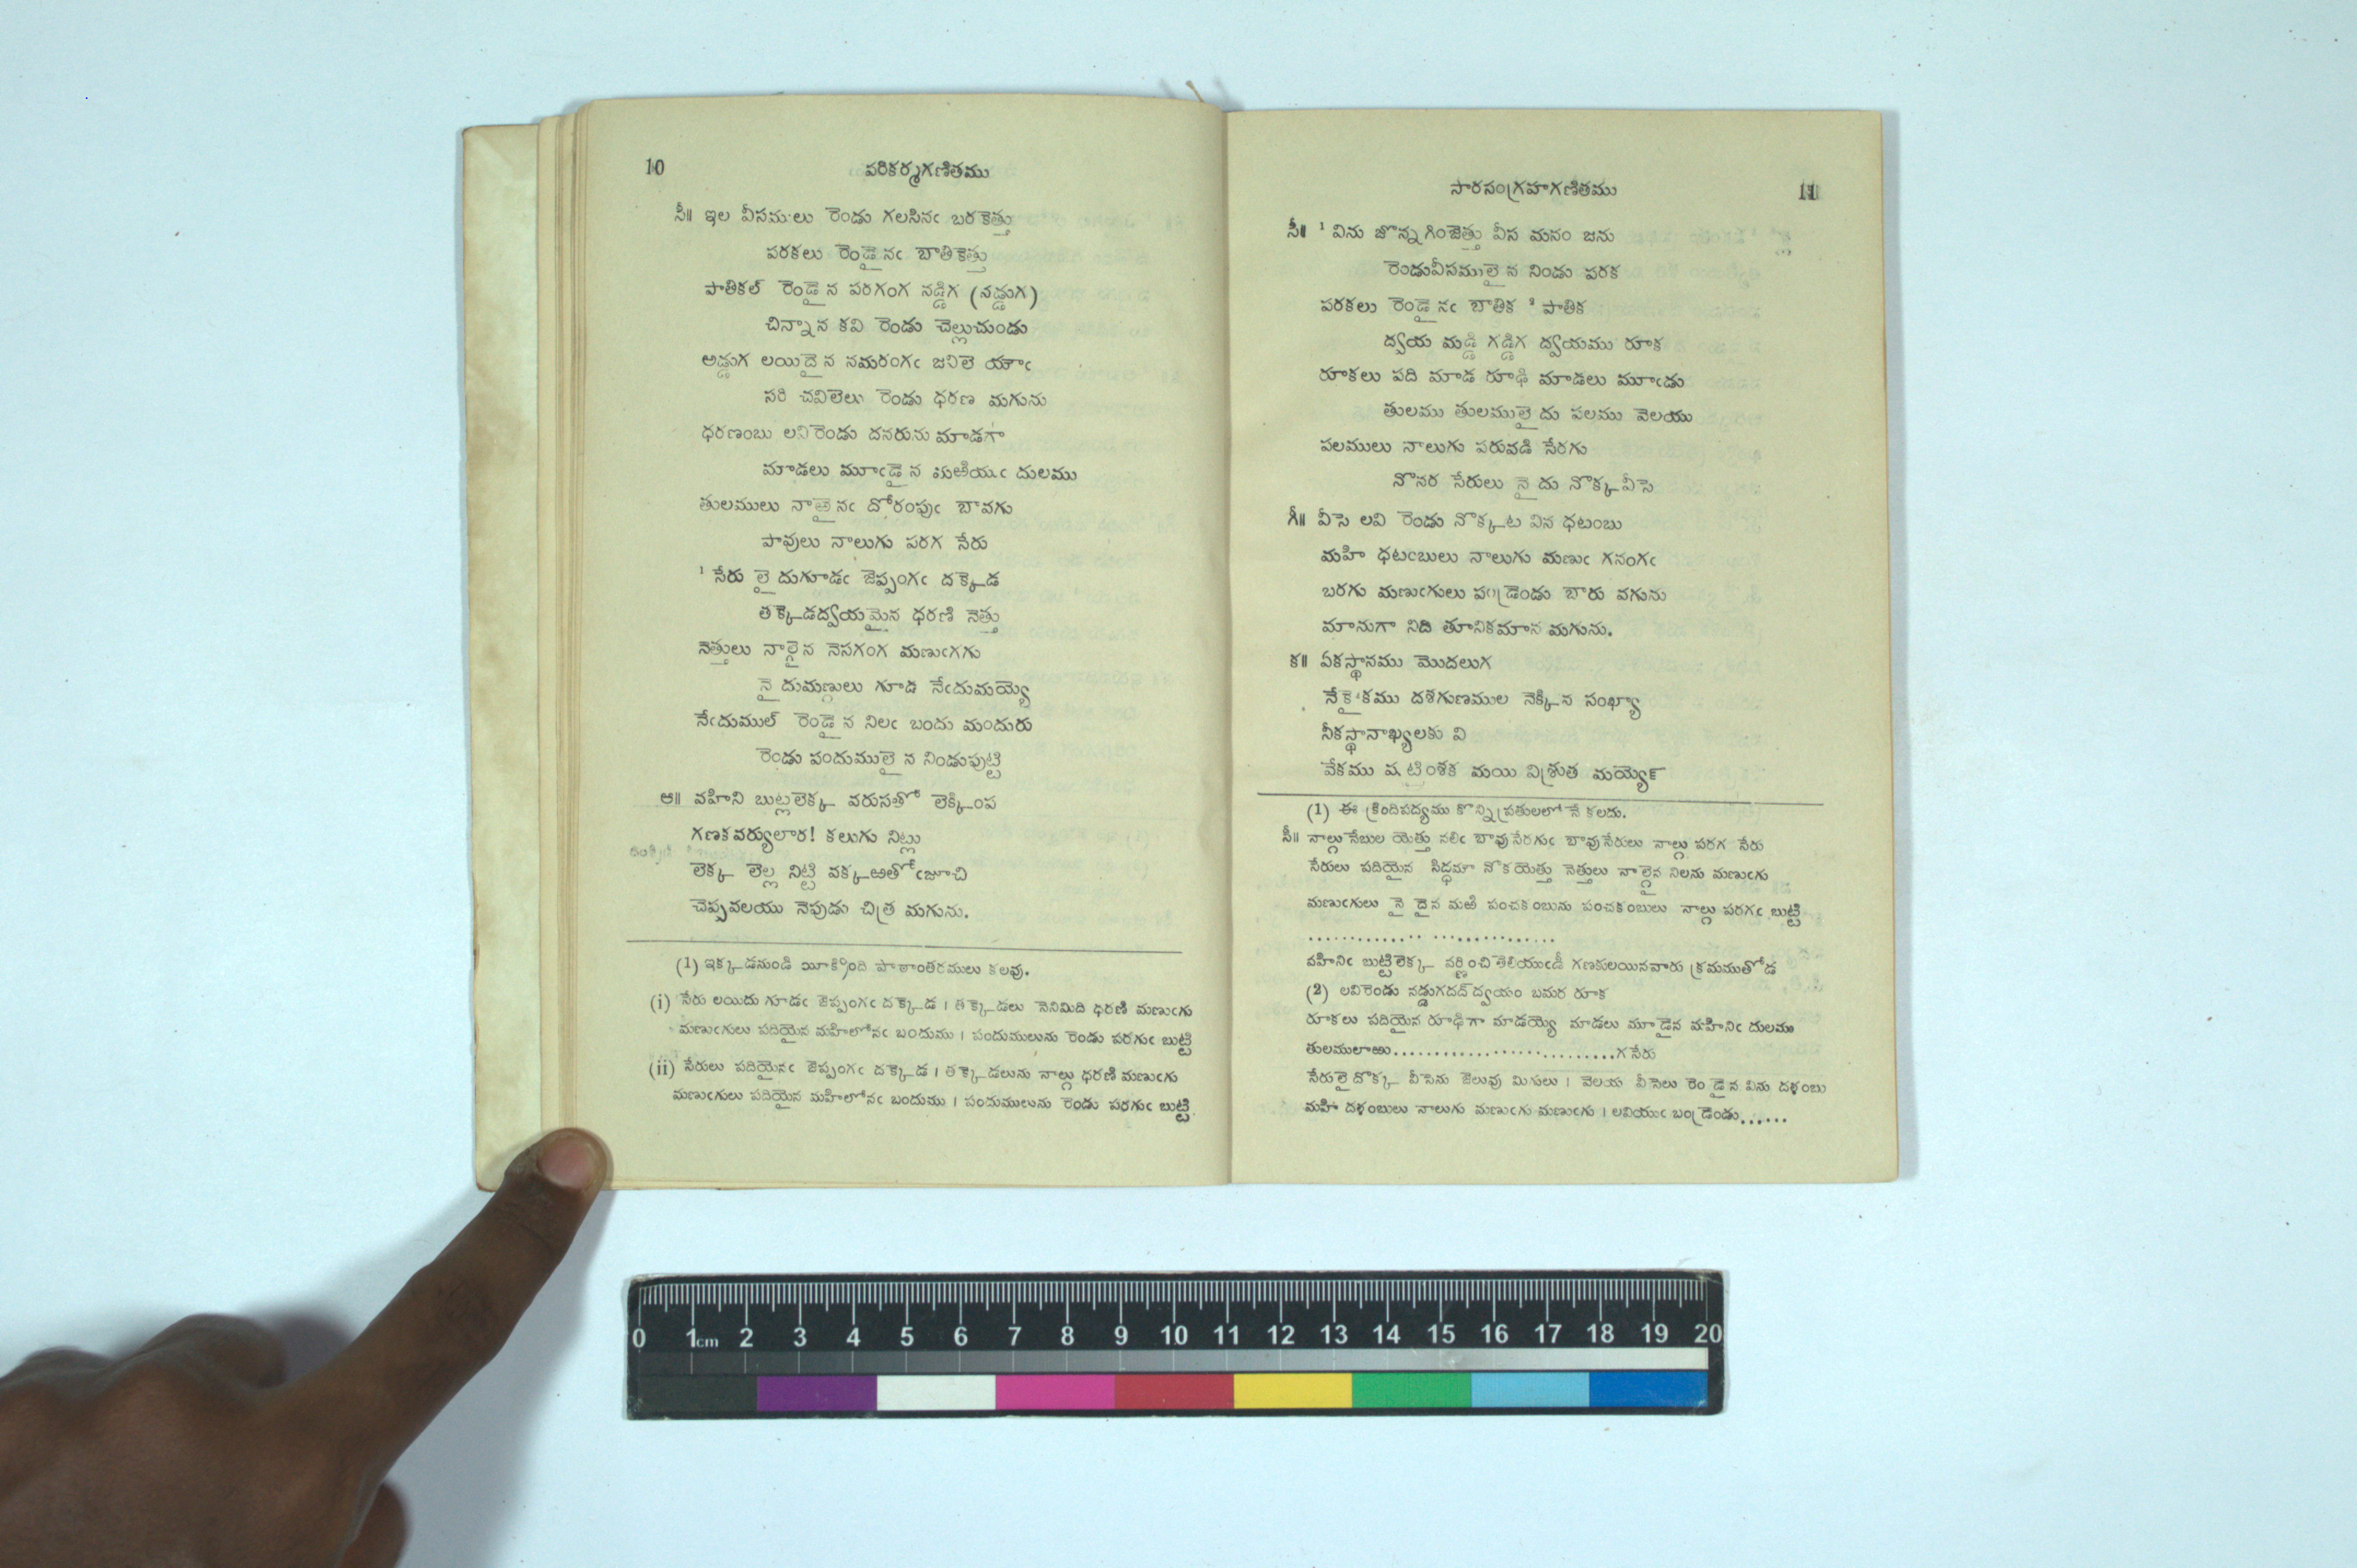 10
పరికర్మగణితము
సీ॥ ఇల వీసములు రెండు గలసినఁ బరకెత్తు
పరకలు రెండైనఁ బాతికెత్తు
పాతికల్ రెండైన పరగంగ నడ్డిగ (నడ్డుగ)
చిన్నాన కవి రెండు చెల్లుచుండు
అడ్డుగ లయిదైన నమరంగఁ జవిలె యౌఁ
సరి చవిలెలు రెండు ధరణ మగును
ధరణంబు లవిరెండు దనరును మాడగా
మాడలు మూఁడైన మఱియుఁ దులము
తులములు నాఱైనఁ దోరంపుఁ బావగు
పావులు నాలుగు పరగ సేరు
1 సేరు లైదుగూడఁ జెప్పంగఁ దక్కెడ
తక్కెడద్వయమైన ధరణి నెత్తు
నెత్తులు నాల్గైన నెసగంగ మణుఁగగు
నైదుమణ్గులు గూడ నేఁదుమయ్యె
నేఁదుముల్ రెండైన నిలఁ బందు మందురు
రెండు పందుములైన నిండుపుట్టి
ఆ॥ వహిని బుట్లలెక్క వరుసతో లెక్కింప
గణకవర్యులార! కలుగు నిట్లు
లెక్క లెల్ల నిట్టి వక్కఱతోఁజూచి
చెప్పవలయు నెపుడు చిత్ర మగును.
(1) ఇక్కడనుండి యీక్రింది పాఠాంతరములు కలవు.
(i) సేరు లయిదు గూడఁ జెప్పంగఁ దక్కెడ । తక్కెడలు నెనిమిది ధరణి మణుఁగు
మణుఁగులు పదియైన మహిలోనఁ బందుము । పందుములును రెండు పరగుఁ బుట్టి
(ii) సేరులు పదియైనఁ జెప్పంగఁ దక్కెడ । తక్కెడలును నాల్గు ధరణి మణుఁగు
మణుఁగులు పదియైన మహిలోనఁ బందుము । పందుములును రెండు పరగుఁ బుట్టి.
సారసంగ్రహగణితము
11
సీ॥ 1 విను జొన్నగింజెత్తు వీస మనం జను
రెండువీసములైన నిండు పరక
పరకలు రెండైనఁ బాతిక 2 పాతిక
ద్వయ మడ్డి గడ్డిగ ద్వయము రూక
రూకలు పది మాడ రూఢి మాడలు మూఁడు
తులము తులములైదు పలము వెలయు
పలములు నాలుగు పరువడి సేరగు
నొనర సేరులు నైదు నొక్కవీసె
గీ॥ వీసె లవి రెండు నొక్కట విన ధటంబు
మహి ధటంబులు నాలుగు మణుఁ గనంగఁ
బరగు మణుఁగులు పండ్రెండు బారు వగును
మానుగా నిది తూనికమాన మగును.
క॥ ఏకస్థానము మొదలుగ
నేకైకము దశగుణముల నెక్కిన సంఖ్యా
నీకస్థానాఖ్యలకు వి
వేకము షట్త్రింశక మయి విశ్రుత మయ్యెన్
(1) ఈ క్రిందిపద్యము కొన్ని ప్రతులలోనే కలదు.
సీ॥ నాల్గు నేబుల యెత్తు నలిఁ బావుసేరగుఁ బావుసేరులు నాల్గు పరగ సేరు
సేరులు పదియైన సిద్ధమౌ నోకయెత్తు నెత్తులు నాల్గైన నిలను మణుఁగు
మణుఁగులు నైదైన మఱి పంచకంబును పంచకంబులు నాల్గు పరగఁ బుట్టి
............................
వహినిఁ బుట్టిలెక్క వర్ణించి తెలియుఁడీ గణకులయినవారు క్రమముతోడ
(2) లవిరెండు నడ్డుగదద్ద్వయం బమర రూక
రూకలు పదియైన రూఢిగా మాడయ్యె మాడలు మూడైన మహినిఁ దులము
తులములాఱు............................గ సేరు
సేరులైదొక్క వీసెను జెలువు మిగులు । వెలయ వీసెలు రెండైన విను దళంబు
మహి దళంబులు నాలుగు మణుఁగు మణుఁగు । లవియుఁ బండ్రెండు......